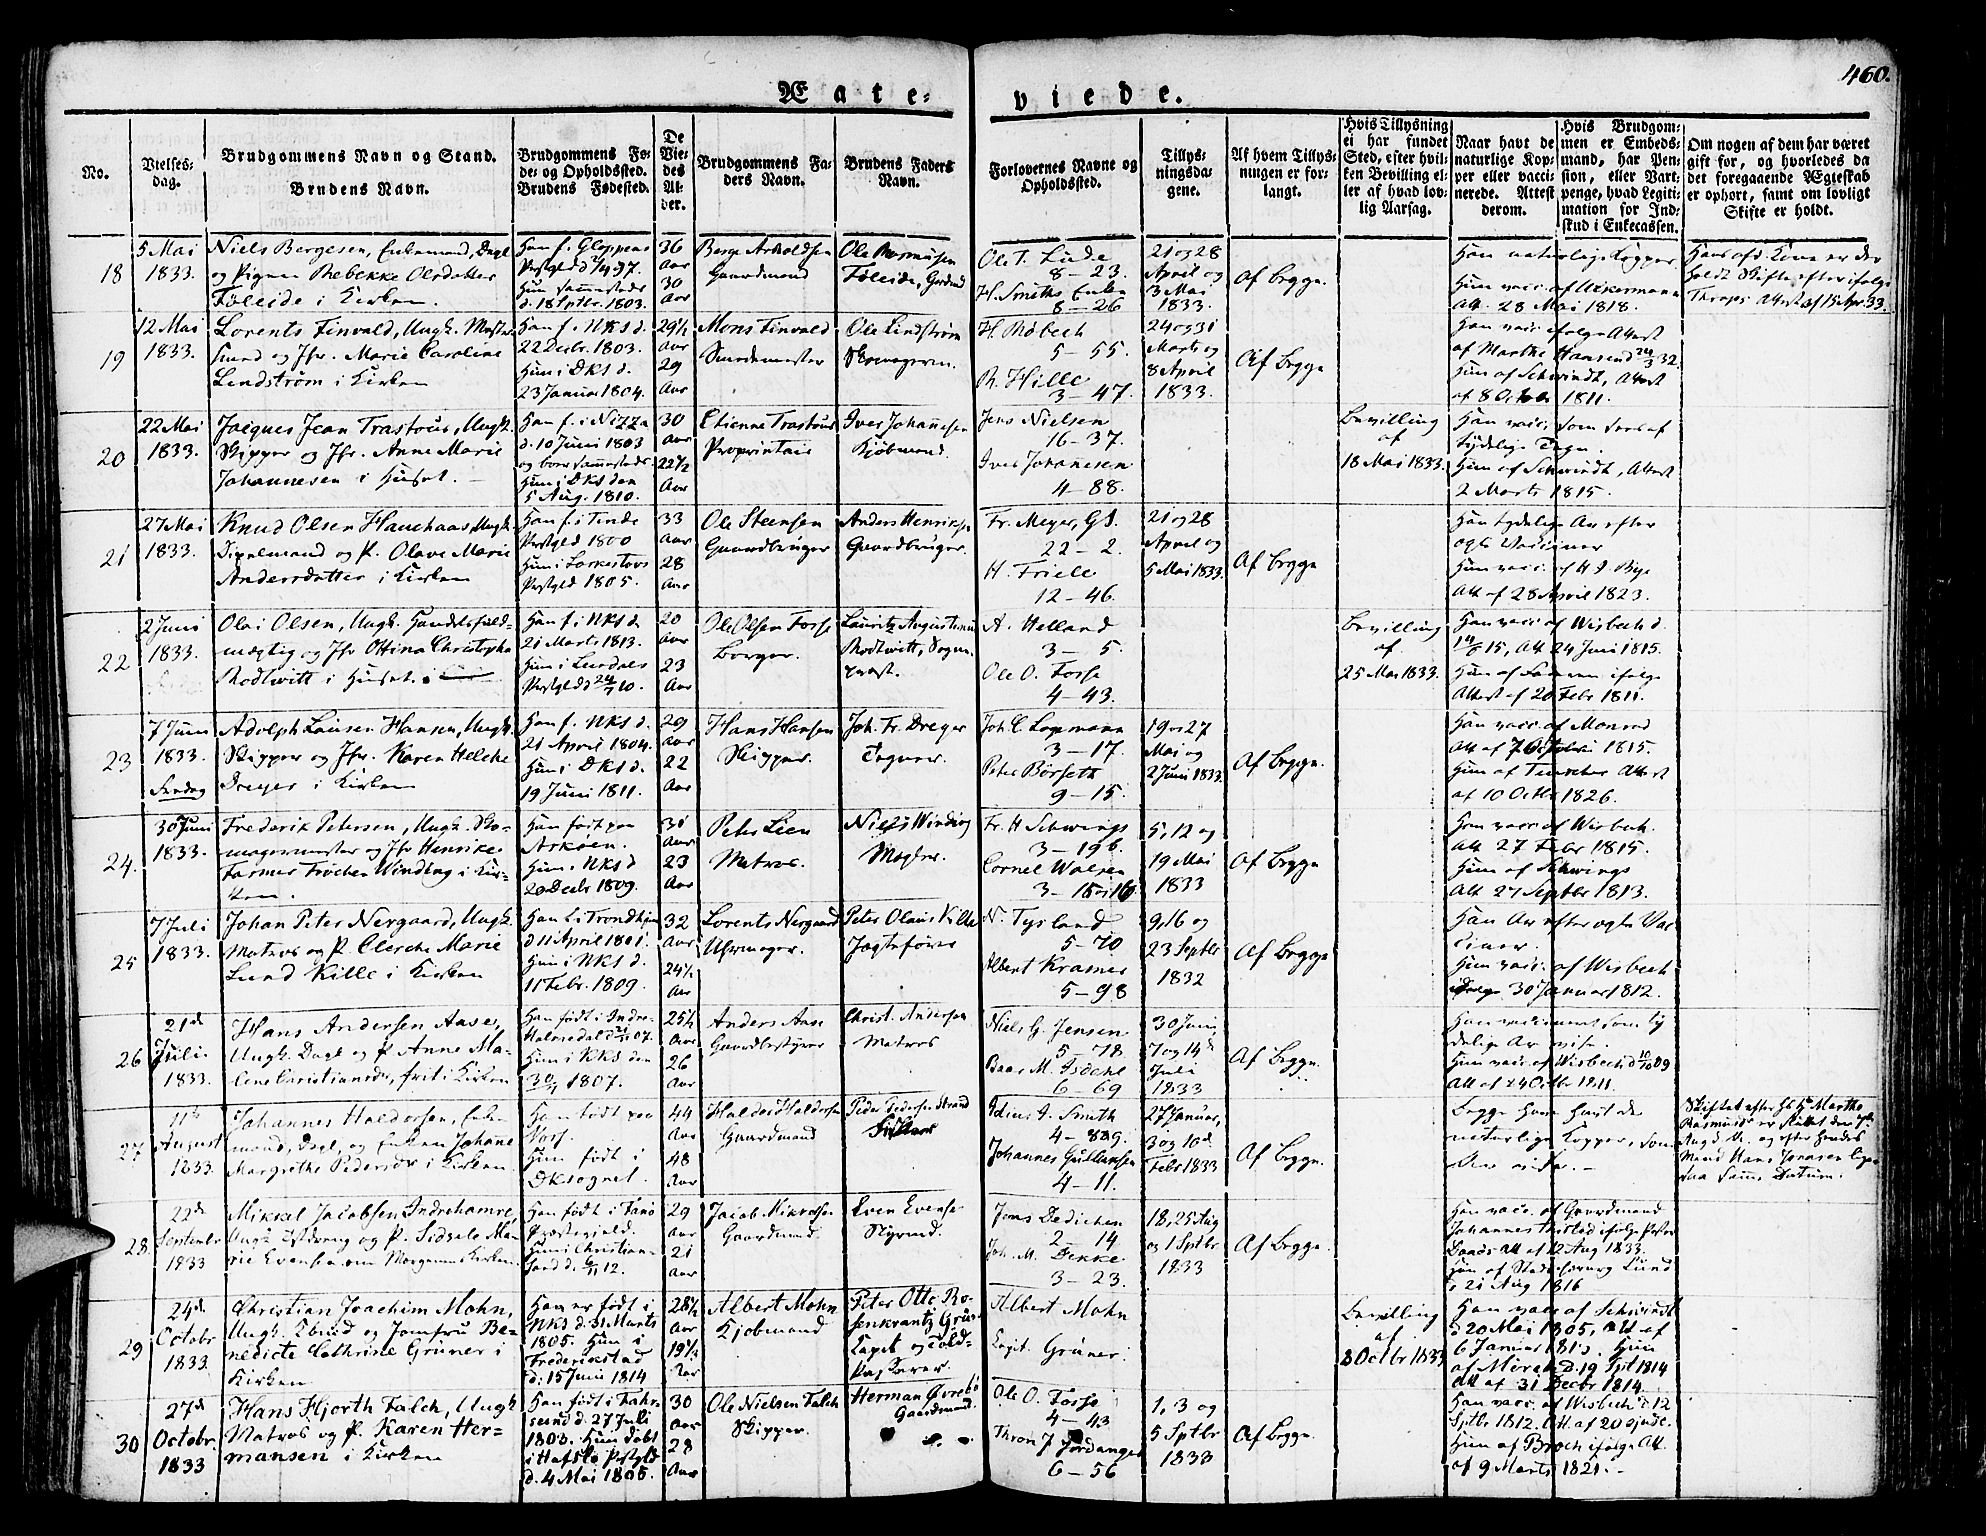 460.
Ægte-
viede.
No.
Vielses-
dag.
Brudgommens Navn og Stand.
Brudens Navn.
Brudgommens Fø-
de- og Opholdssted.
Brudens Fødested.
De
Vie-
des
Al-
der.
Brudgommens Fa-
ders Navn.
Brudens Faders
Navn.
Forlovernes Navne og
Opholdssted.
Tillys-
ningsda-
gene.
Af hvem Tillys-
ningen er for-
langt.
Hvis Tillysning
ei har fundet
Sted, efter hvil-
ken Bevilling el-
ler af hvad lov-
lig Aarsag.
Naar havt de
naturlige Kop-
per eller vacci-
nerede. Attest
derom.
Hvis Brudgom-
men er Embeds-
mand, har Pen-
sion, eller Vart-
penge, hvad Legiti-
mation for Ind-
skud i Enkecassen.
Om nogen af dem har været
gift før, og hvorledes da
det foregaaende Ægteskab
er ophørt, samt om lovligt
Skifte er holdt.
18
5 Mai
1833.
Niels Bergesen, Enkemand, Dagl
og Pigen Rebekke Olsdatter
Følleide i Kirken.
Han f. Gloppens
Hun sammesteds
d. 18 Sptbr. 1803.
36
Aar
30
Aar
Berge Arholdsen
Gaardmand
Ole Rasmusen
Følleide, Grdmd
Ole T. Lude
8-23.
H. Smiths Enke
8-26
21 og 28
April og
3 Mai
1833.
Af begge.
Han naturlige Kopper
Hun vacc. af
Att. 28 Mai 1818.
Hans afd. Kone er der
holdt Skifte efter ifølge
19
12 Mai
1833.
Lorents Finvald, Ungk.
Smed og Jfr. Marie Caroline
Lendstrøm i Kirken
Han f. NKs d.
22 Decbr. 1803.
Hun i DKs d.
23 Januar 1804.
29½
Aar
29
Aar
Mons Finvald
Smedemester
Ole Lindstrøm
Skomagersv.
H. Robech
5-55.
R. Hille
3-47.
24 og 31
Marts og
8 April
1833.
Af Begge
Han vacc. ifølge Attest
af Marthe Hansen d.
Hun af Schwindt, Attest
af 8 Octbr 1811.
20
22 Mai
1833.
Jacques Jean Trastour, Ungk.
Skipper og Jfr. Anne Marie
Johannesen i Huset.
Han f. i Nizza
d. 10 Juni 1803
og boer sammesteds
Hun i DKs den
5 Aug. 1810.
30
Aar
22½
Aar
Etienne Trastour
Proprietair
Iver Johannesen
Kjøbmand.
Jens Nielsen
16-37.
Iver Johannesen
4-88.
Bevilling
af
18 Mai 1833.
Han vacc. som sees af
tydelige Tegn.
Hun af Schwindt, Attest
2 Marts 1815.
21
27 Mai
1833.
Knud Olsen Hauchaas, Ungk.
og P. Olave Marie
Andersdatter i Kirken
Han f. i Tinds
Prstgld 1800
Hun i
Prstgld 1805.
33
Aar
28
Aar
Ole Steensen
Gaardbruger
Anders Henriksen
Gaardbruger.
Fr. Meyer, Gl.
22-2.
H. Friele
12-46.
21 og 28
April og
5 Mai 1833.
Af Begge
Han tydelige Ar efter
ægte Vacciner
Hun vacc. af H. J. Bye
Att. af 28 April 1823.
22
2 Juni
1833.
Olai Olsen, Ungk. Handelsfuld-
mægtig og Jfr Ottina Christopha
Rodtwitt i Huset.
Han f. i NKs d.
21 Marts 1813.
Hun i Leirdals
20
Aar
23
Aar
Ole Olsen Fosse
Borger.
Lauritz Augustinus
Rodtwitt, Sogne-
præst.
A. Helland
3-5.
Ole O. Fosse
4-43.
Bevilling
af
25 Mai 1833.
Han vacc. af Wisbech d.
Att 24 Juni 1815.
Hun af
Attest af 20 Febr 1811.
23
7 Juni
1833.
Adolph Hansen, Ungk.
Skipper og Jfr. Karen Helche
Dreyer i Kirken
Han f. NKs d.
21 April 1804.
Hun i DKs d.
19 Juni 1811.
29
Aar
22
Aar
Hans Hansen
Skipper.
Joh. Fr. Dreyer
Tegner.
Joh. C. Lopmann
3-17.
Peter Børseth
9-15.
19 og 27
Mai og
2 Juni 1833.
Af begge.
Han vacc. af Monrad
Att. af 7 Octobr 1815.
Hun af Attest
af 10 Octbr 1826.
24.
30 Juni
1833.
Frederik Petersen, Ungk. Sko-
magermester og Jfr Henrike
Farmer Frøchen Winding i Kir-
ken.
Han født paa
Askøen.
Hun i NKs d
20 Decbr 1809.
31
Aar
23
Aar
Peter Lien
Matros.
Niels Winding
Mægler.
Fr. H. Schwings
3-196.
Cornel Walsen
5, 12 og
19 Mai
1833
Af Begge
Han vacc. af Wisbech.
Att. 27 Febr 1815.
Hun af Schwings
Att 27 Septbr 1813.
25
7 Juli
1833.
Johan Peter Nergaard, Ungk.
Matros og P. Clerche Marie
Lund Kille i Kirken
Han i Trondhjem
d 11 April 1801.
Hun i NKs d.
11 Febr. 1809.
32
Aar
24½
Aar
Lorents Nergaard
Uhrmager.
Peter Olaus Kille
Jagtefører
N. Tysland
5-70
Albert Kramer
5-98
9, 16 og
23 Septbr
1832
Af Begge
Han Ar efter ægte Vac-
ciner.
Hun vacc. af Wisbech
30 Januar 1812.
26
21de
Juli
1833.
Hans Andersen Aase,
Ungk. Dagl og P. Anne Ma-
lene Christiansdr, frit i Kirken
Han født i Indre
Holmedal d
Hun i KKs den
1807.
25½
Aar
26
Aar
Anders Aase
Gaardbestyrer
Christ. Andersen
Matros
Niels G. Jensen
5-78
Baar M. Isdahl
6-69
30 Juni,
7 og 14de
Juli
1833
Af Begge
Han vaccineret som ty-
delige Ar vise.
Hun vacc. af Wisbech d
Att af 24 Octbr 1811.
27
11te
August
1833.
Johannes Haldorsen, Enke-
mand, Dagl og Enken Johane
Margrethe Pedersdr i Kirken.
Han født paa
Voss.
Hun født i
DKsognet.
44
Aar
48
Aar
Haldor Haldorsen
Gaardmand
Peder Pedersen Strand
J. Smith
4-89.
Johannes Gullaksen
4-11.
27 Januar,
3 og 10de
Febr 1833
Af Begge.
Begge have havt de
naturlige Kopper, som
Ar vise.
Skiftet efter
Rasmusdr er sluttet den
Augst og efter hendes
Mand Hans Jonasen
paa Sam. Datum.
28.
22de
Septembr
1833
Mikkel Jacobsen Indrehamre,
Ungk. og P. Sidsele Ma-
rie Evensen om Morgenen i Kirken.
Han født i Fanø
Præstegjeld.
Hun i Christian-
sand d.
29
Aar
21
Aar
Jacob Mikkelsen
Gaardmand.
Even Evensen
Styrmd.
Jens Dedichen
2-14
Joh. M. Dekke
3-23.
18, 25 Aug
og 1 Sptbr
1833
Af Begge.
Han vacc. af Gaardmand
Johannes
Att af 12 Aug 1833.
Hun af Lund
21 Aug 1816
29
24de
Octobr
1833
Christian Joachim Mohn,
Ungk. og Jomfru Be-
nedicte Cathrine Grüner i
Kirken
Han er født i
NKs d. 31 Marts
1805. Hun i
Frederikstad
d: 15 Juni 1814
28½
Aar
19½
Aar
Albert Mohn
Kjøbmand
Peter Otto Ro-
senkrantz Grüner
Capit og Told-
Albert Mohn
Capit. Grüner.
Bevilling
af
8 Octbr 1833
Han vacc. af Schwindt
d 20 Mai 1805, Att af
6 Januar 1813. Hun
af d. 19 Spt 1814
Att af 31 Decbr 1814.
30
27de
Octobr.
1833
Hans Hjorth Falch, Ungk
Matros og P. Karen Her-
mansen i Kirken
Han født i Fahr-
sund d. 27 Juli
1803. Hun født
i Hafslo Prstgld
d. 4 Mai 1805.
30
Aar
28
Aar
Ole Nielsen Falch
Skipper.
Herman Øvrebø
Gaardmand.
Ole O. Fosse
4-43
Thron J Jordanger
6-56
1, 3 og
5 Sptbr
1833
Af Begge.
Han vacc. af Wisbech d 12
Sptbr 1812. Att af 20 ejusd.
Hun af Broch ifølge Att.
af 9 Marts 1821.